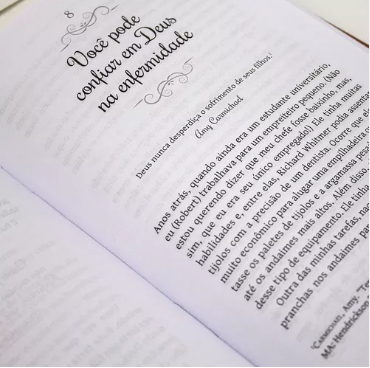 8
Você pode
confiar em Deus
na enfermidade
Deus nunca desperdiça o sofrimento de seus filhos.¹
Amy Carmichael
Anos atrás, quando ainda era um estudante universitário,
eu (Robert) trabalhava para um empreiteiro pequeno. (Não
estou querendo dizer que meu chefe fosse baixinho, mas,
sim, que eu era seu único empregado!) Ele tinha muitas
habilidades e, entre elas, Richard Whitmer podia assentar
tijolos com a precisão de um dentista. Ocorre que
muito econômico para alugar uma empilhadeira
tasse os paletes de tijolos e a argamassa
até os andaimes mais altos. Além disso,
desse tipo de equipamento. Ele tinha
Outra das minhas tarefas,
pranchas nos andaimes
MA: Hendrickson